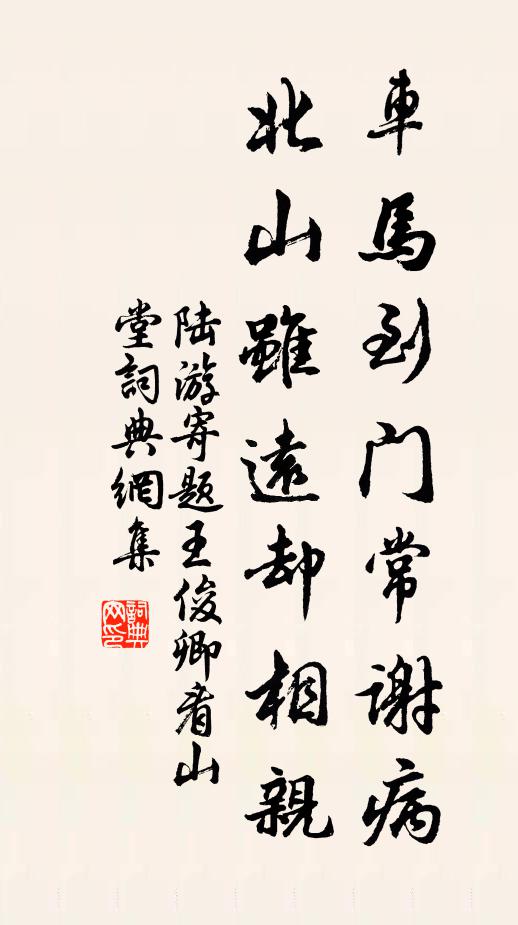 車馬到門常謝病
北山雖遠却相親
陆游寄题王俊卿看山
堂詞典網集
詞典网印